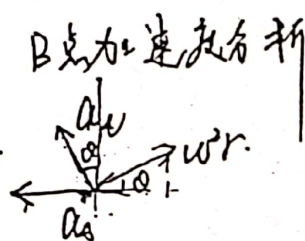 B点加速度分析
a_t
θ
ω²r.
θ
a_B